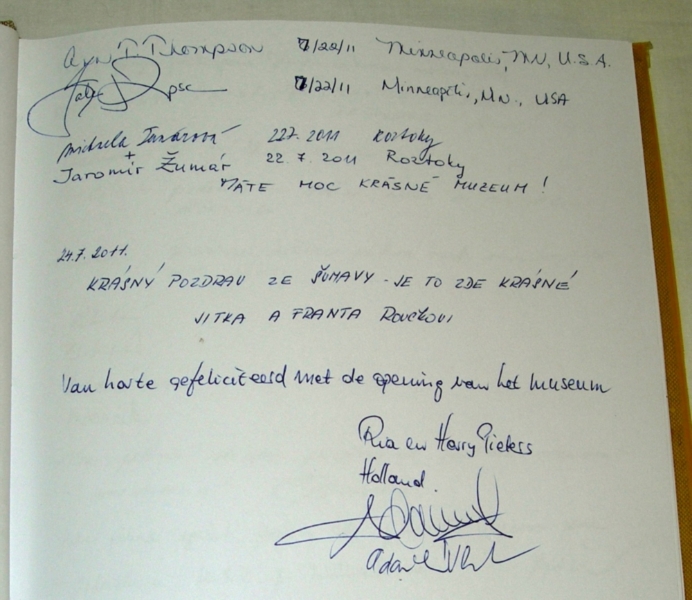 Thompson 7/22/11 Minneapolis, MN, U.S.A.
7/22/11 Minneapolis, MN., USA
22.7. 2011 Roztoky
+
Jaromír Žumár 22. 7. 2011 Roztoky
MÁTE MOC KRÁSNÉ MUZEUM !
24.7. 2011.
KRÁSNÝ POZDRAV ZE ŠUMAVY - JE TO ZDE KRÁSNÉ
JITKA A FRANTA
Van harte gefeliciteerd met de opening van het museum
Ria en Harry Pieters
Holland.